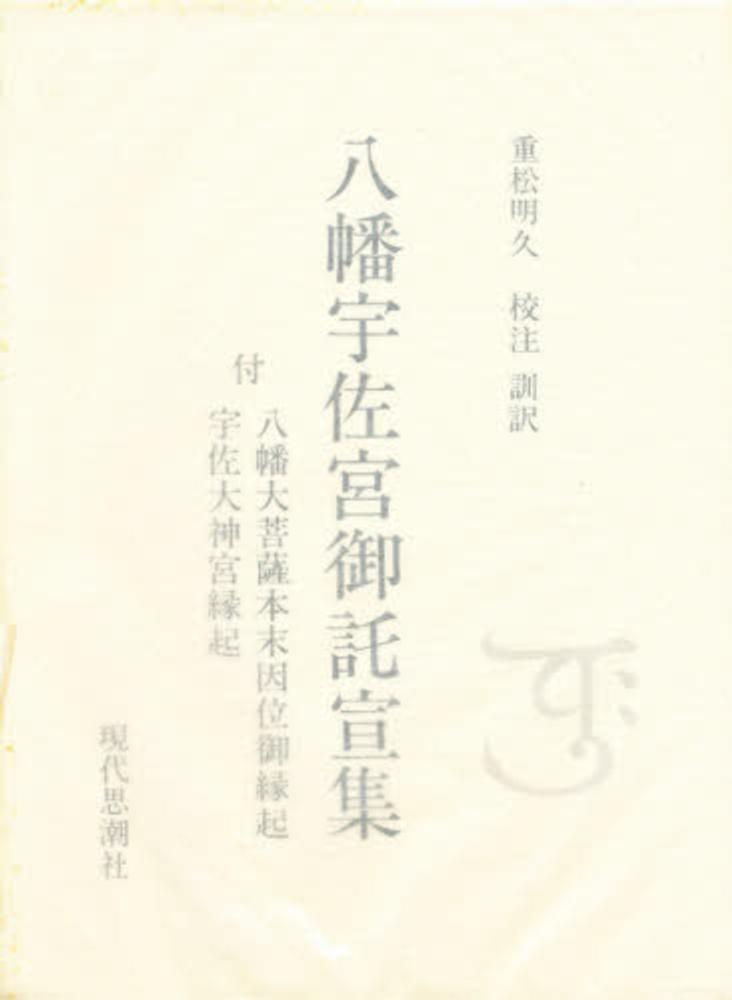 重松明久 校注 訓訳
八幡宇佐宮御託宣集
付
八幡大菩薩本末因位御縁起
宇佐大神宮縁起
現代思潮社